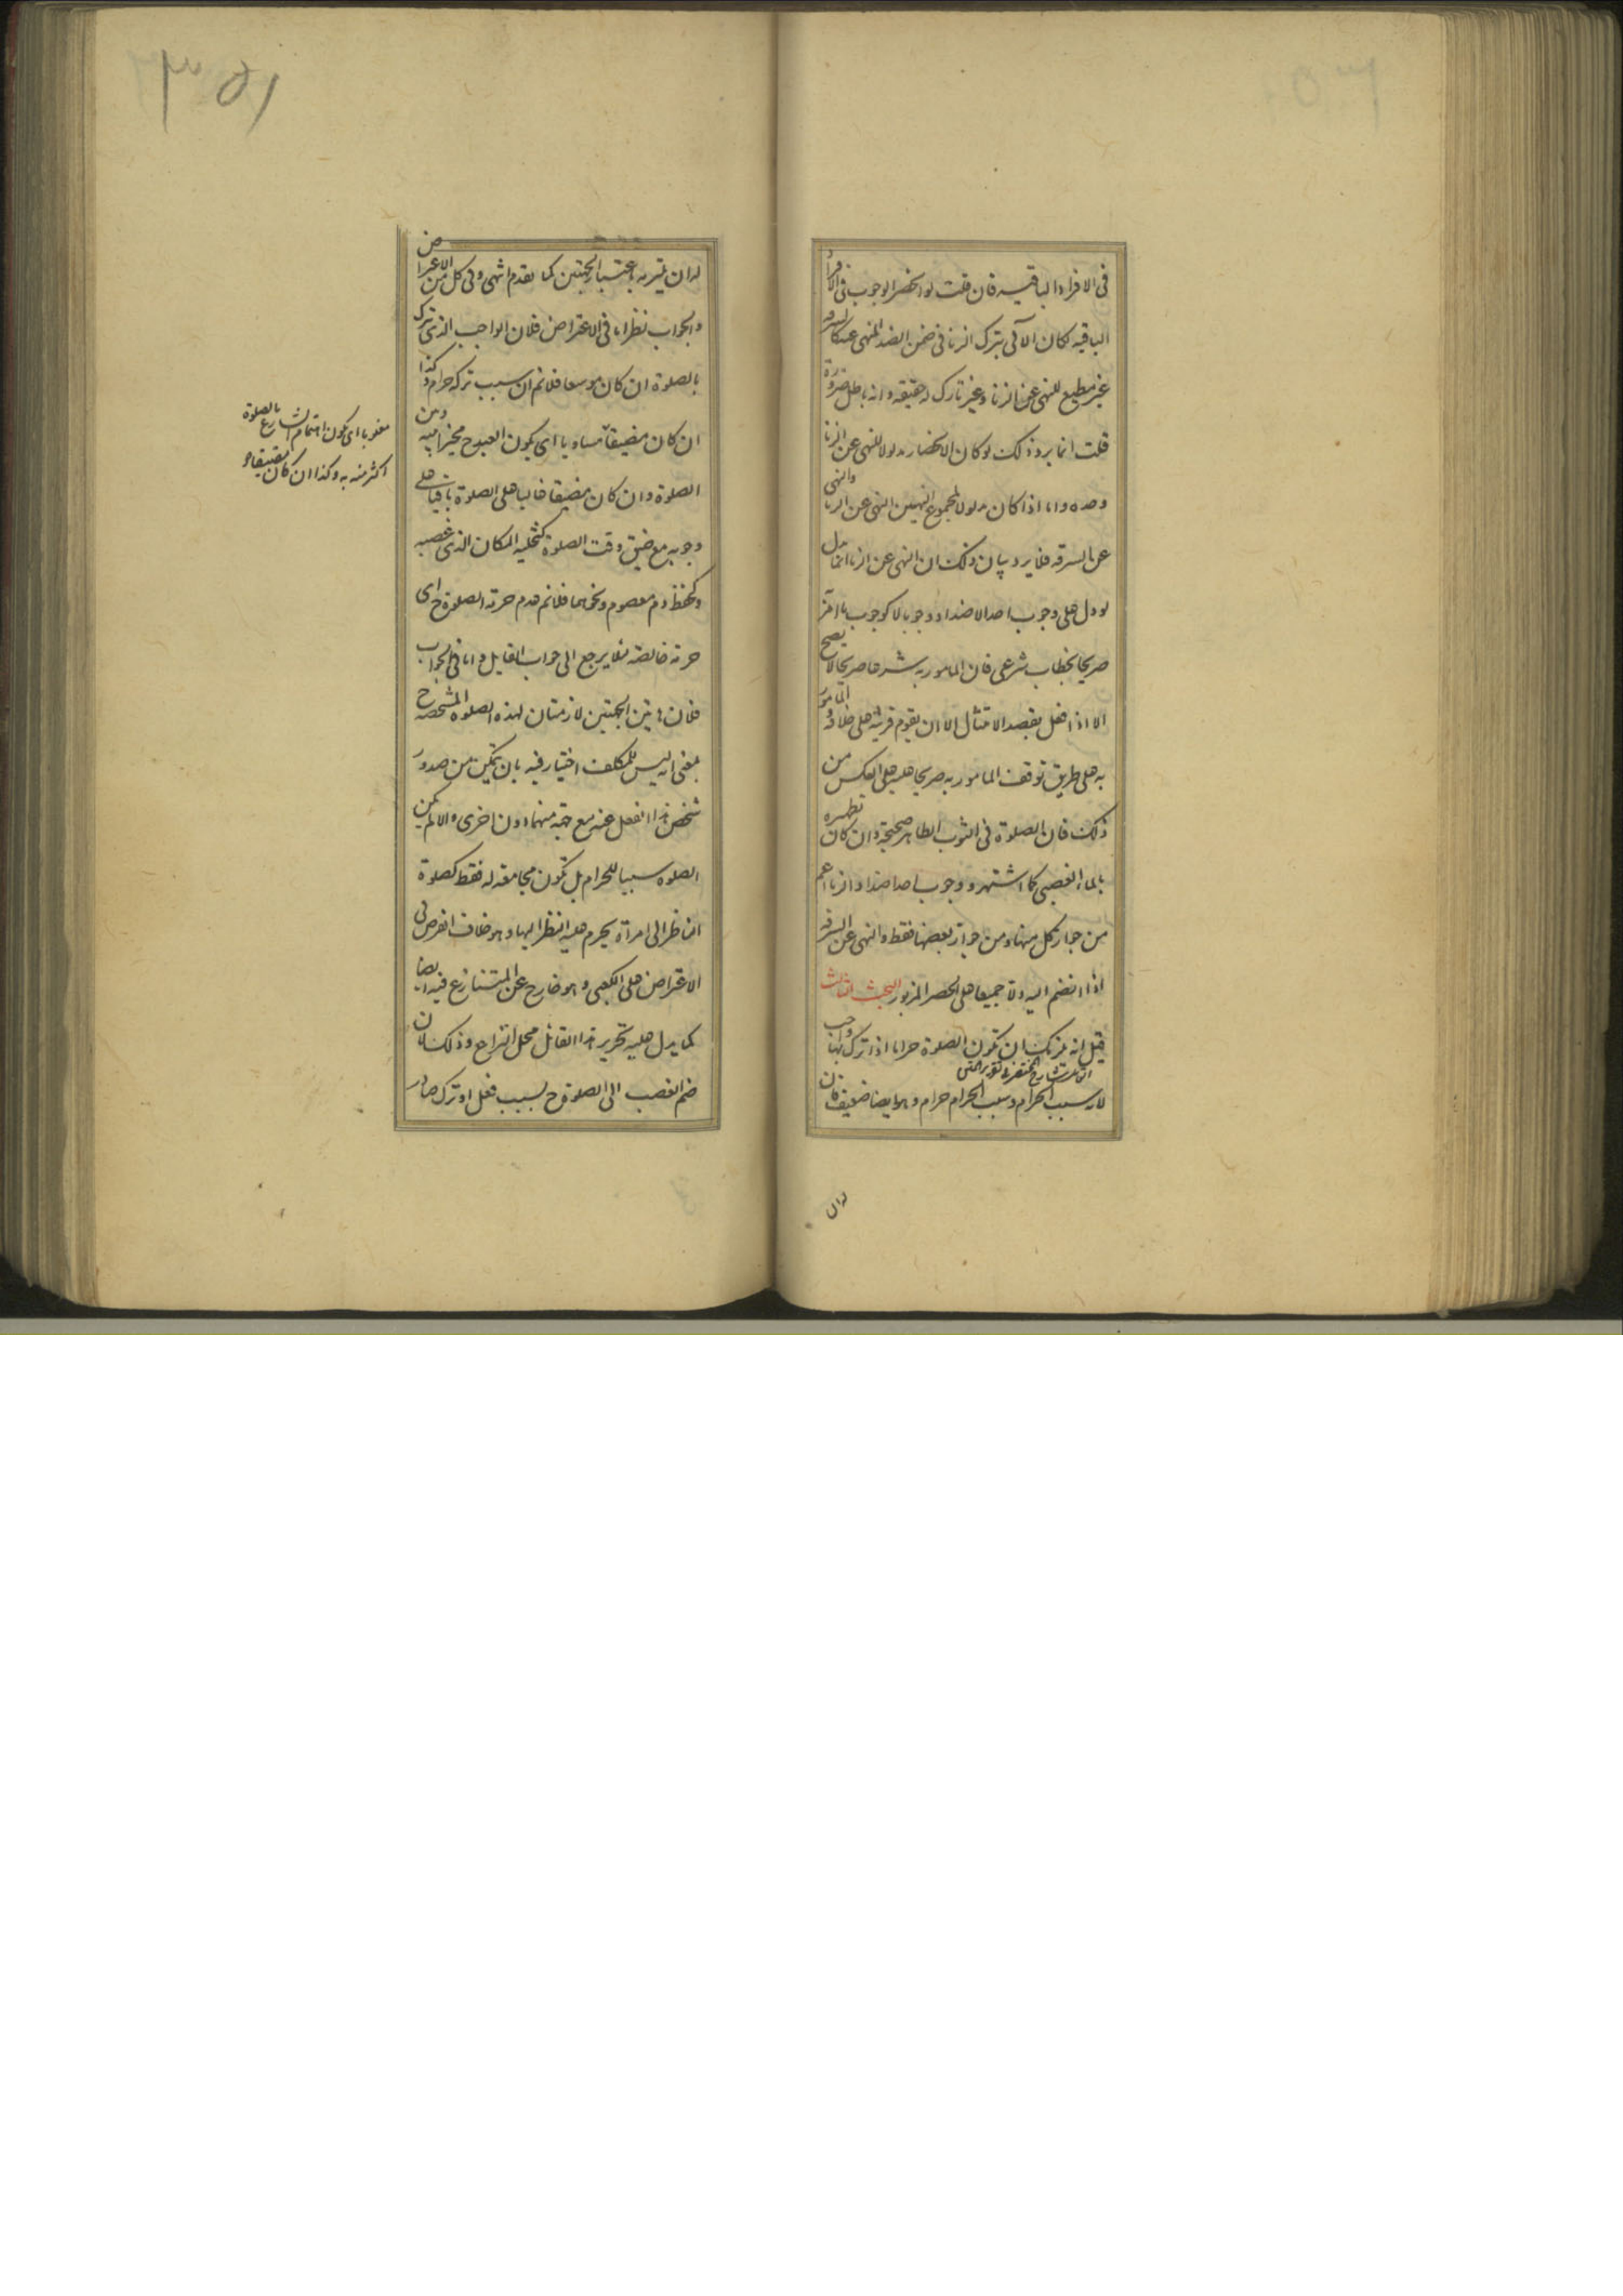 فى الافراد الباقيه فان قلت لو انحصر الوجوب فى الافراد
الباقيه لكان الآتى بترك الزنا فى ضمن الضد المنهى عنه كالسرقه
غير مطيع للنهى عن الزنا و غير تارك له حقيقه و انه باطل ضرورة
قلت انما يرد ذلك لو كان الانحصار مدلولا للنهى عن الزنا
وحده و اما اذا كان مدلولا لمجموع النهيين النهى عن الزنا والنهى
عن السرقه فلا يرد بيان ذلك ان النهى عن الزنا انما يدل
لو دل على وجوب احد الاضداد وجوبا لا كوجوب ما امر
صريحا بخطاب شرعى فان المامور به شرعا صريحا لا يصح
الا اذا فعل بقصد الامتثال الا ان يقوم قرينة على خلافه و المامور
به على طريق توقف المامور به صريحا عليه على العكس من
ذلك فان الصلوة فى الثوب الطاهر صحيحة و ان كان تطهره
بالماء الغصبى كما اشتهر و وجوب احد اضداد الزنا اعم
من جواز كل منها و من جواز بعضها فقط و النهى عن السرقه
اذا انضم اليه دلا جميعا على الحصر المزبور البحث الثالث
قيل انه يمكن ان تكون الصلوة حراما اذا ترك بها واجب
القائل شارح المختصر فى تقرير المتن
لانه سبب الحرام و سبب الحرام حرام و هو ايضا ضعيف فان
له ان
١٥٣
له ان يتيربه باعتبار الجهتين كما تقدم انتهى و فى كل من الاعتراض
و الجواب نظر اما فى الاعتراض فلان الواجب الذى ترك
بالصلوة ان كان موسعا فلا نم ان سبب تركه حرام و كذا
ان كان مضيقا مساويا اى يكون العبد ح مخيرا بينه و بين
الصلوة و ان كان مضيقا غالبا على الصلوة باقيا على
وجوبه مع ضيق وقت الصلوة كتخلية المكان الذى غصبه
و كحفظ دم معصوم و نحوهما فلا نم عدم حرمة الصلوة ح اى
حرمة خالصة فلا يرجع الى جواب القايل و اما فى الجواب
فلان هاتين الجهتين لازمتان لهذه الصلوه المشخصه ح
بمعنى انه ليس للمكلف اختيار فيه بان يتمكن من صدور
شخص هذا الفعل عنه مع جهة منهما دون اخرى و الا لم يكن
الصلوه سببا للحرام بل تكون مجامعة له فقط كصلوة
الناظر الى امرأة يحرم عليه النظر اليها و هو خلاف الفرض فى
الاعتراض على الكعبى و هو خارج عن المتنازع فيه ايضا
كما يدل عليه تحرير هذا القائل محل النزاع و ذلك لان
ضم الغصب الى الصلوة ح بسبب فعل او ترك صادر
مغلوبا اى يكون اهتمام الشارع بالصلوة
اكثر منه به و كذا ان كان مضيقا و